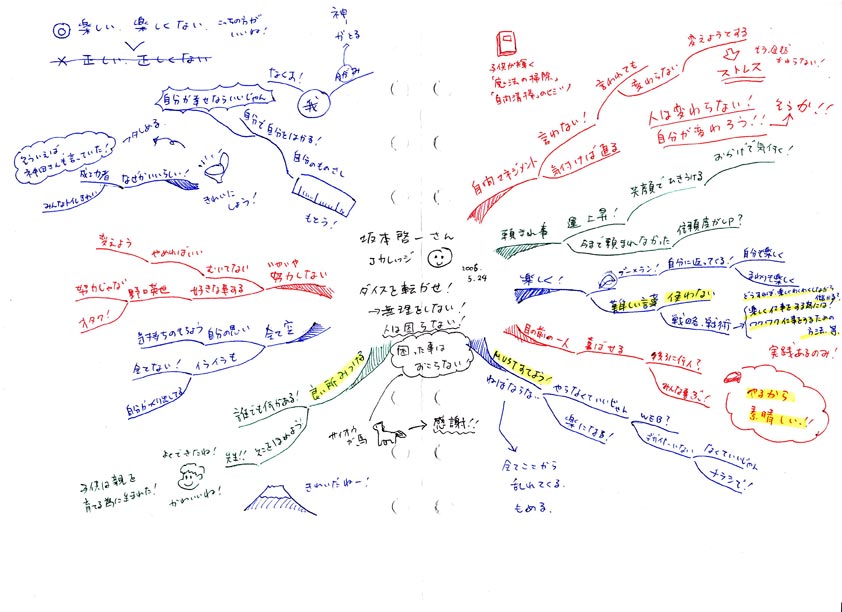 ◎ 楽しい、楽しくない、こっちの方が
いいね!
× 正しい、正しくない
神
がとる
なくす!
我
自分が幸せならいいじゃん
自分で自分をはかる!
自分のものさし
もとう!
そういえば
神田さんも言っていた!
成功者
なぜかいいらしい!
みんなトイレきれい
きれいに
しよう!
子供が輝く
「魔法の掃除」
「自問清掃」のヒミツ!
自問マネジメント
言わない!
言われても
変わらない
変えようとする
ストレス
人は変わらない!
自分が変わろう!!
そうか!!
気付けば進る
頼まれ事
運上昇!
笑顔でひきうける
おかげで気付く!
今まで頼まれなかった
信頼度がUP?
坂本啓一さん
Jカレッジ
2006.
5.24
ダイスを転がせ!
→無理をしない!
人は困らない!
困った事は
おこらない
変えよう
やめればいい
むいてない
いやいや
努力しない
努力じゃない
野口英世
好きな事する
オタク!
気持ちのせよう
自分の思い
全て空
全てない!
イライラも
自分がつくり出してる
楽しく!
ブーメラン!
自分に返ってくる!
自分で楽しく
まわりで楽しく
難しい言葉
使わない
戦略、戦術
楽しく仕事をする為には?
ワクワク仕事をするための
方法、策
実践あるのみ!
目の前の一人
喜ばせる
特別に行く人?
みんな喜ぶ!
やるから
素晴しい!!
MUSTすてよう!
ねばならない
やらなくていいじゃん
楽になる!
WEB?
なくていいじゃん
チラシで!
全てここから
乱れてくる
もめる
良い所みつける
誰でも何かある!
そこをほめよう!
先生!!
よくできたね!
かわいいね!
子供は親を
育てる為に生まれた!
サイオウ
が馬
→ 感謝!!
きれいだねー!